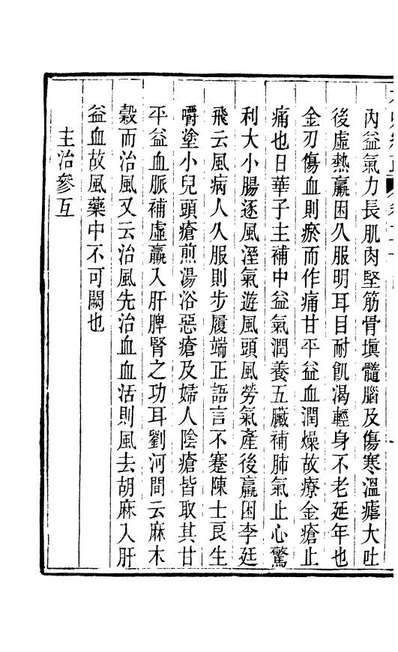 內益氣力長肌肉堅筋骨塡髓腦及傷寒溫瘧大吐
後虛熱羸困久服明耳目耐飢渴輕身不老延年也
金刃傷血則瘀而作痛甘平益血潤燥故療金瘡止
痛也日華子主補中益氣潤養五臟補肺氣止心驚
利大小腸逐風溼氣遊風頭風勞氣產後羸困李廷
飛云風病人久服則步履端正語言不蹇陳士良生
嚼塗小兒頭瘡煎湯浴惡瘡及婦人陰瘡皆取其甘
平益血脈補虛羸入肝脾腎之功耳劉河間云麻木
穀而治風又云治風先治血血活則風去胡麻入肝
益血故風藥中不可闕也
主治參互